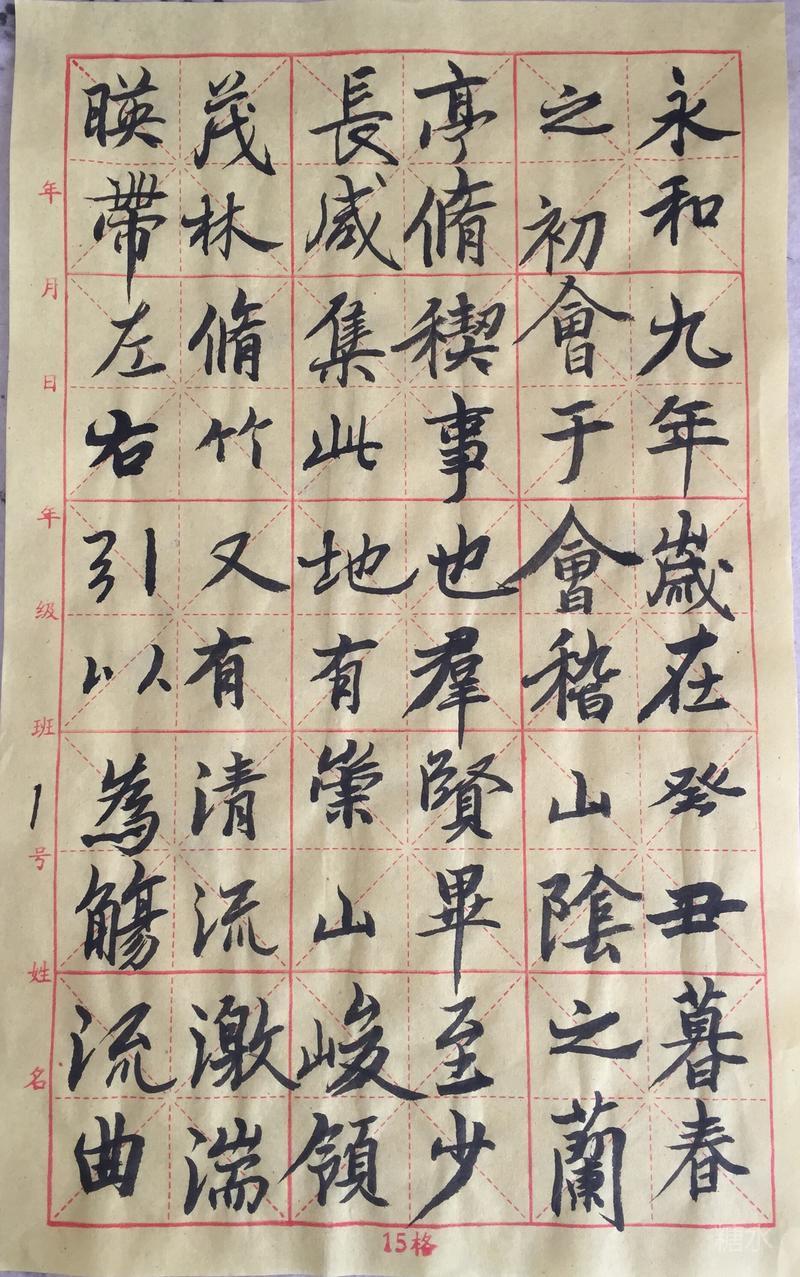 永和九年歲在癸丑暮春
之初會于會稽山陰之蘭
亭脩稧事也羣賢畢至少
長咸集此地有崇山峻領
茂林脩竹又有清流激湍
暎帶左右引以為觴流曲
年 月 日 年级 班 1 号 姓名
15格
糖水